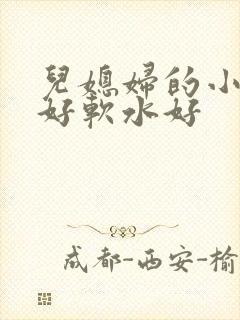 兒媳婦的小
好軟水好
成都-西安-榆